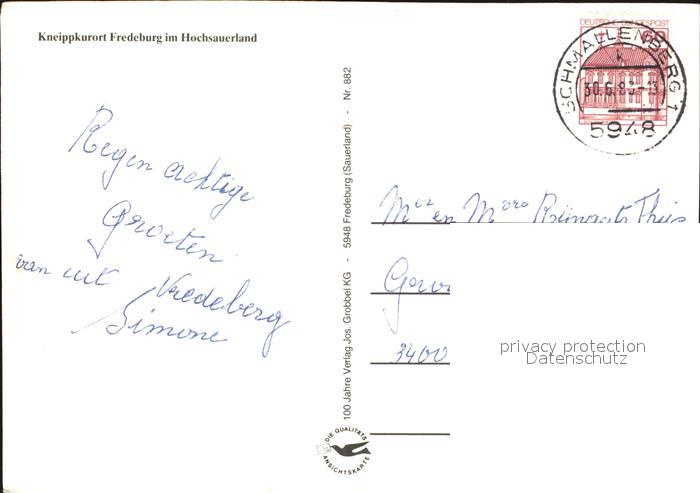 Kneippkurort Fredeburg im Hochsauerland
DEUTSCHE BUNDESPOST
60
SCHMALLENBERG 1
k
30.6.8
5948
Regen achtige
Groeten
van uit Vredeberg
Simone
100 Jahre Verlag Jos. Grobbel KG - 5948 Fredeburg (Sauerland) - Nr. 882
DIE QUALITÄTS
ANSICHTSKARTE
en Theis
3400
privacy protection
Datenschutz